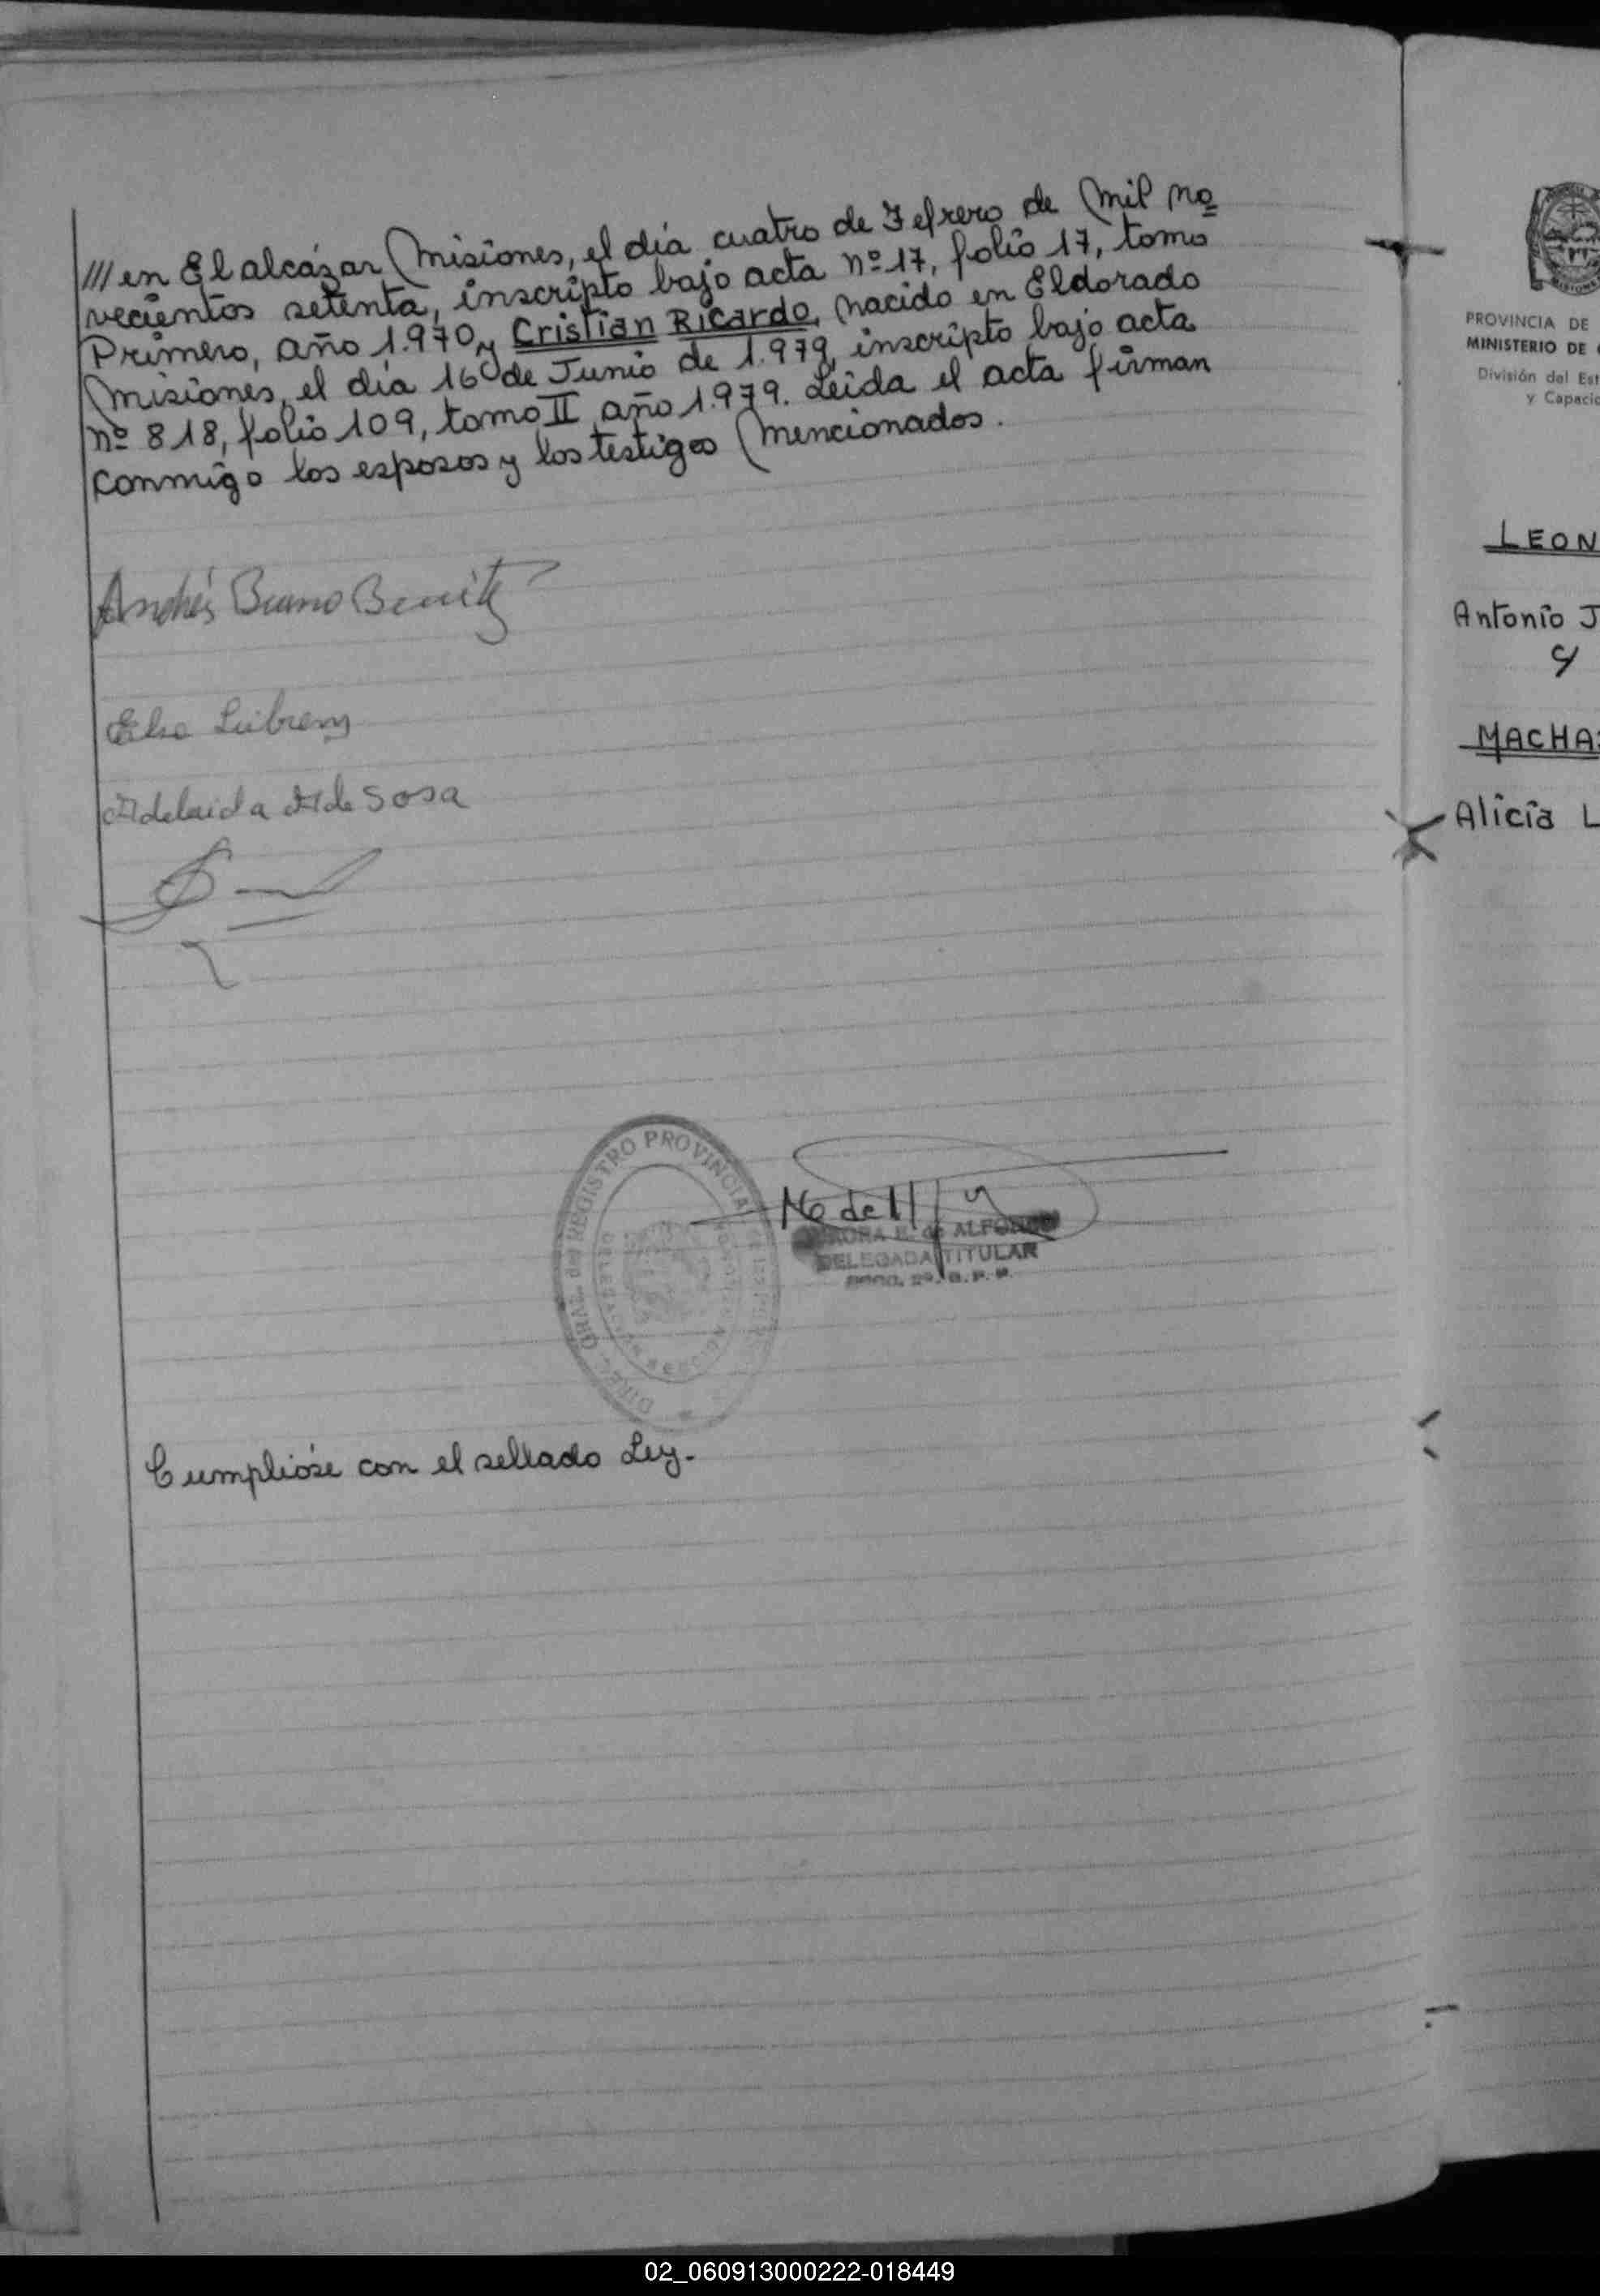 /// en El alcázar Misiones, el día cuatro de Febrero de Mil no
vecientos setenta, inscripto bajo acta nº 17, folio 17, tomo
Primero, año 1.970 y Cristian Ricardo, nacido en Eldorado
Misiones, el día 16 de Junio de 1.979, inscripto bajo acta
nº 818, folio 109, tomo II año 1.979. Leída el acta firman
conmigo los esposos y los testigos Mencionados.
Andrés Bruno Benitez
Adelaida A de Sosa
GRAL. del REGISTRO PROVINCIAL
DELEGACION
de ALFONSO
DELEGADA TITULAR
Cumplióse con el sellado Ley.
PROVINCIA DE
MINISTERIO DE
División del Est
y Capacic
LEON
Antonio J
c/
MACHA
Alicia L
02_060913000222-018449